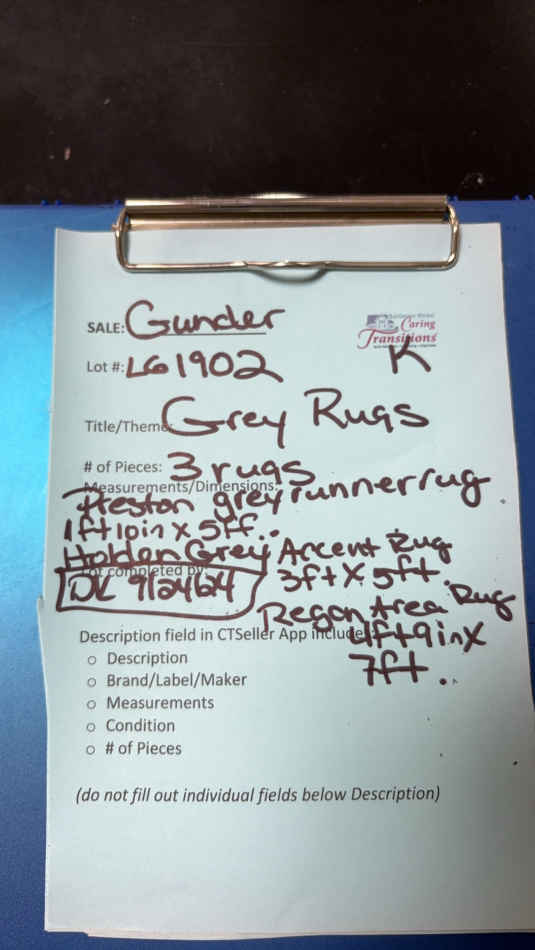 SALE: Gunder
Caring
Transitions
K
Lot #: LG1902
Title/Theme: Grey Rugs
# of Pieces: 3 rugs
Measurements/Dimensions:
Preston grey runner rug
1ft10in x 5ft..
Holden Grey Accent Rug
3ft x 5ft.
completed by:
DK 9/24/24
Regan Area Rug
4ft9inx
7ft..
Description field in CTSeller App include
o Description
o Brand/Label/Maker
o Measurements
o Condition
o # of Pieces
(do not fill out individual fields below Description)